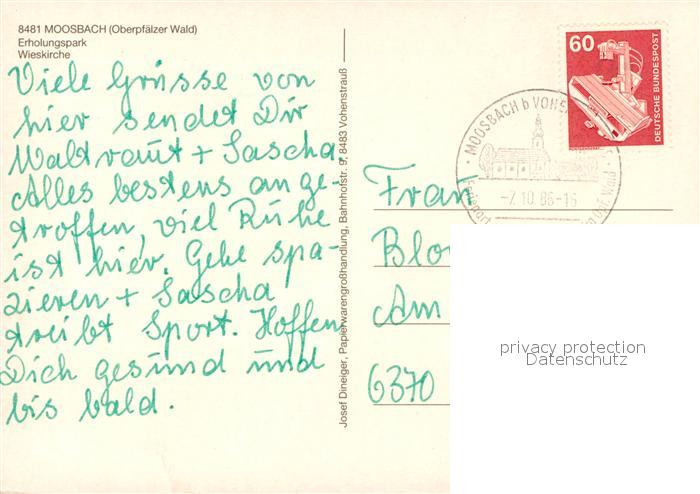 8481 MOOSBACH (Oberpfälzer Wald)
Erholungspark
Wieskirche
Viele Grüsse von
hier sendet Dir
Waltraut + Sascha
Alles bestens ange-
troffen, viel Ruhe
ist hier. Gehe spa-
zieren + Sascha
treibt Sport. Hoffen
Dich gesund und
bis bald.
Josef Dineiger, Papierwarengroßhandlung, Bahnhofstr. 9, 8483 Vohenstrauß
60
DEUTSCHE BUNDESPOST
MOOSBACH b VOHEN
-7.10.86-16
Ferienort
Opf. Wald
Am
6370
privacy protection
Datenschutz